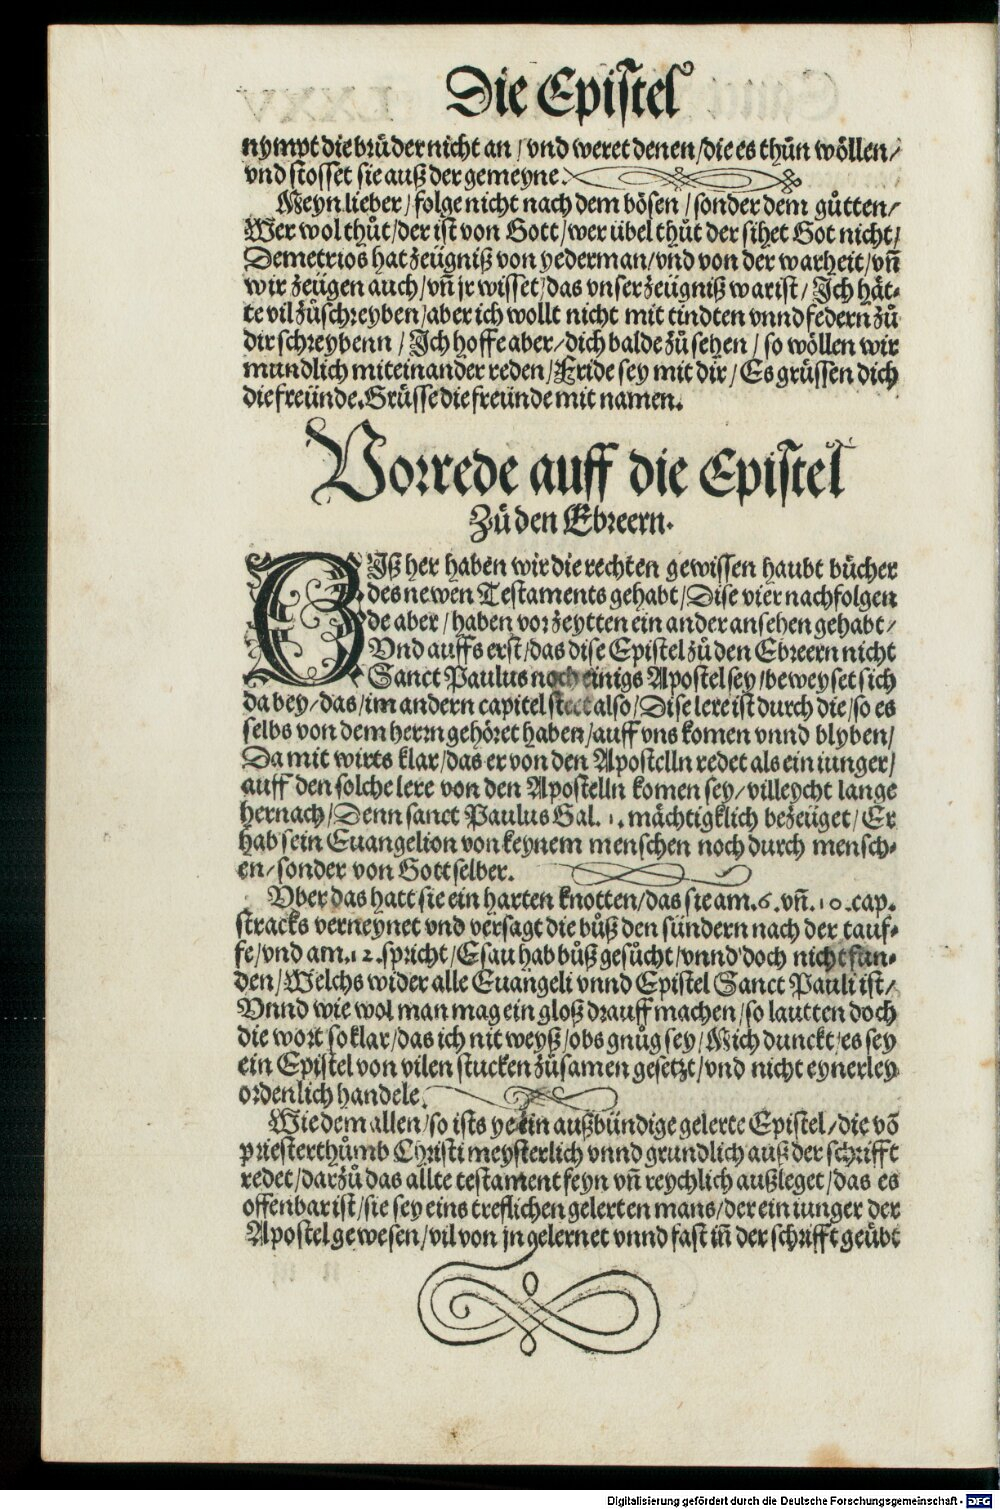 Die Epistel
nympt die brůder nicht an / vnd weret denen / die es thůn wöllen /
vnd stosset sie auß der gemeyne.
Meyn lieber / folge nicht nach dem bösen / sonder dem gůtten /
Wer wol thůt / der ist von Gott / wer übel thůt der sihet Got nicht /
Demetrios hat zeügniß von yederman / vnd von der warheit / vñ
wir zeügen auch / vñ jr wisset / das vnser zeügniß war ist / Ich hät-
te vil zůschreyben / aber ich wollt nicht mit tindten vnnd federn zů
dir schreybenn / Ich hoffe aber / dich balde zů sehen / so wöllen wir
mundlich miteinander reden / Fride sey mit dir / Es grüssen dich
die freünde. Grüsse die freünde mit namen.
Vorrede auff die Epistel
Zů den Ebreern.
BIß her haben wir die rechten gewissen haubt bücher
des newen Testaments gehabt / Dise vier nachfolgen
de aber / haben vorzeytten ein ander ansehen gehabt /
Vnd auffs erst / das dise Epistel zů den Ebreern nicht
Sanct Paulus noch einigs Apostel sey / beweyset sich
da bey / das / im andern capitel stett also / Dise lere ist durch die / so es
selbs von dem herrn gehöret haben / auff vns komen vnnd blyben /
Da mit wirts klar / das er von den Apostelln redet als ein iunger /
auff den solche lere von den Apostelln komen sey / villeycht lange
hernach / Denn sanct Paulus Gal. 1. mächtigklich bezeüget / Er
hab sein Euangelion von keynem menschen noch durch mensch-
en / sonder von Gott selber.
Vber das hatt sie ein harten knotten / das sie am. 6. vñ. 10. cap.
stracks verneynet vnd versagt die bůß den sündern nach der tauf-
fe / vnd am. 12. spricht / Esau hab bůß gesůcht / vnnd doch nicht fun-
den / Welchs wider alle Euangeli vnnd Epistel Sanct Pauli ist /
Vnnd wie wol man mag ein gloß drauff machen / so lautten doch
die wort so klar / das ich nit weyß / obs gnůg sey / Mich dunckt / es sey
ein Epistel von vilen stucken zůsamen gesetzt / vnd nicht eynerley
ordenlich handele.
Wie dem allen / so ists ye ein außbündige gelerte Epistel / die vō
priesterthůmb Christi meysterlich vnnd grundlich auß der schrifft
redet / darzů das allte testament feyn vñ reychlich außleget / das es
offenbar ist / sie sey eins treflichen gelerten mans / der ein iunger der
Apostel gewesen / vil von jn gelernet vnnd fast iñ der schrifft geübt
Digitalisierung gefördert durch die Deutsche Forschungsgemeinschaft - DFG